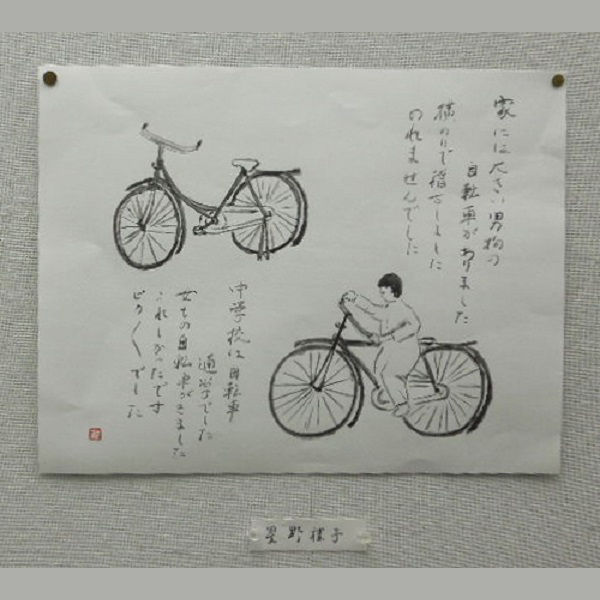 家には大きい男物の
自転車がありました
横のりで稽古しました
のれませんでした
中学校は自転車
通学でした
女もの自転車がきました
うれしかったです
ピカピカでした
星野